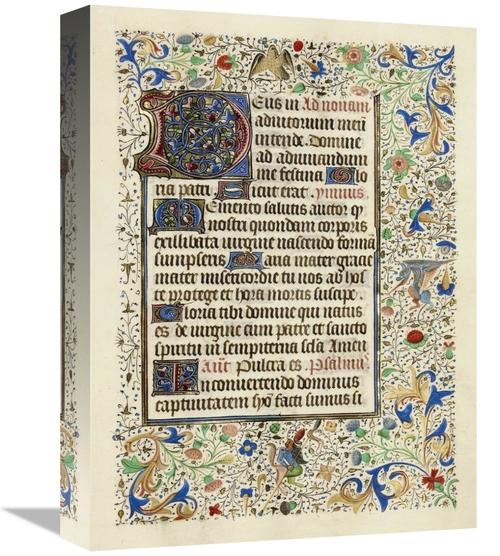 Deus in Ad nonam
adiutorium meū
intende. Domine
ad adiuuandum
me festina Glo
ria patri Sicut erat. ymnus.
Memento salutis auctor qͥ
nostri quondam corporis
ex illibata uirgine nascendo formā
sumpseris Maria mater gracie
mater misericordie tu nos ab hos
te protege et hora mortis suscipe.
Gloria tibi domine qui natus
es de uirgine cum patre et sancto
spiritu in sempiterna scla Amen
Ant̄ Pulcra es. Psalmus
In conuertendo dominus
captiuitatem syon facti sumus si